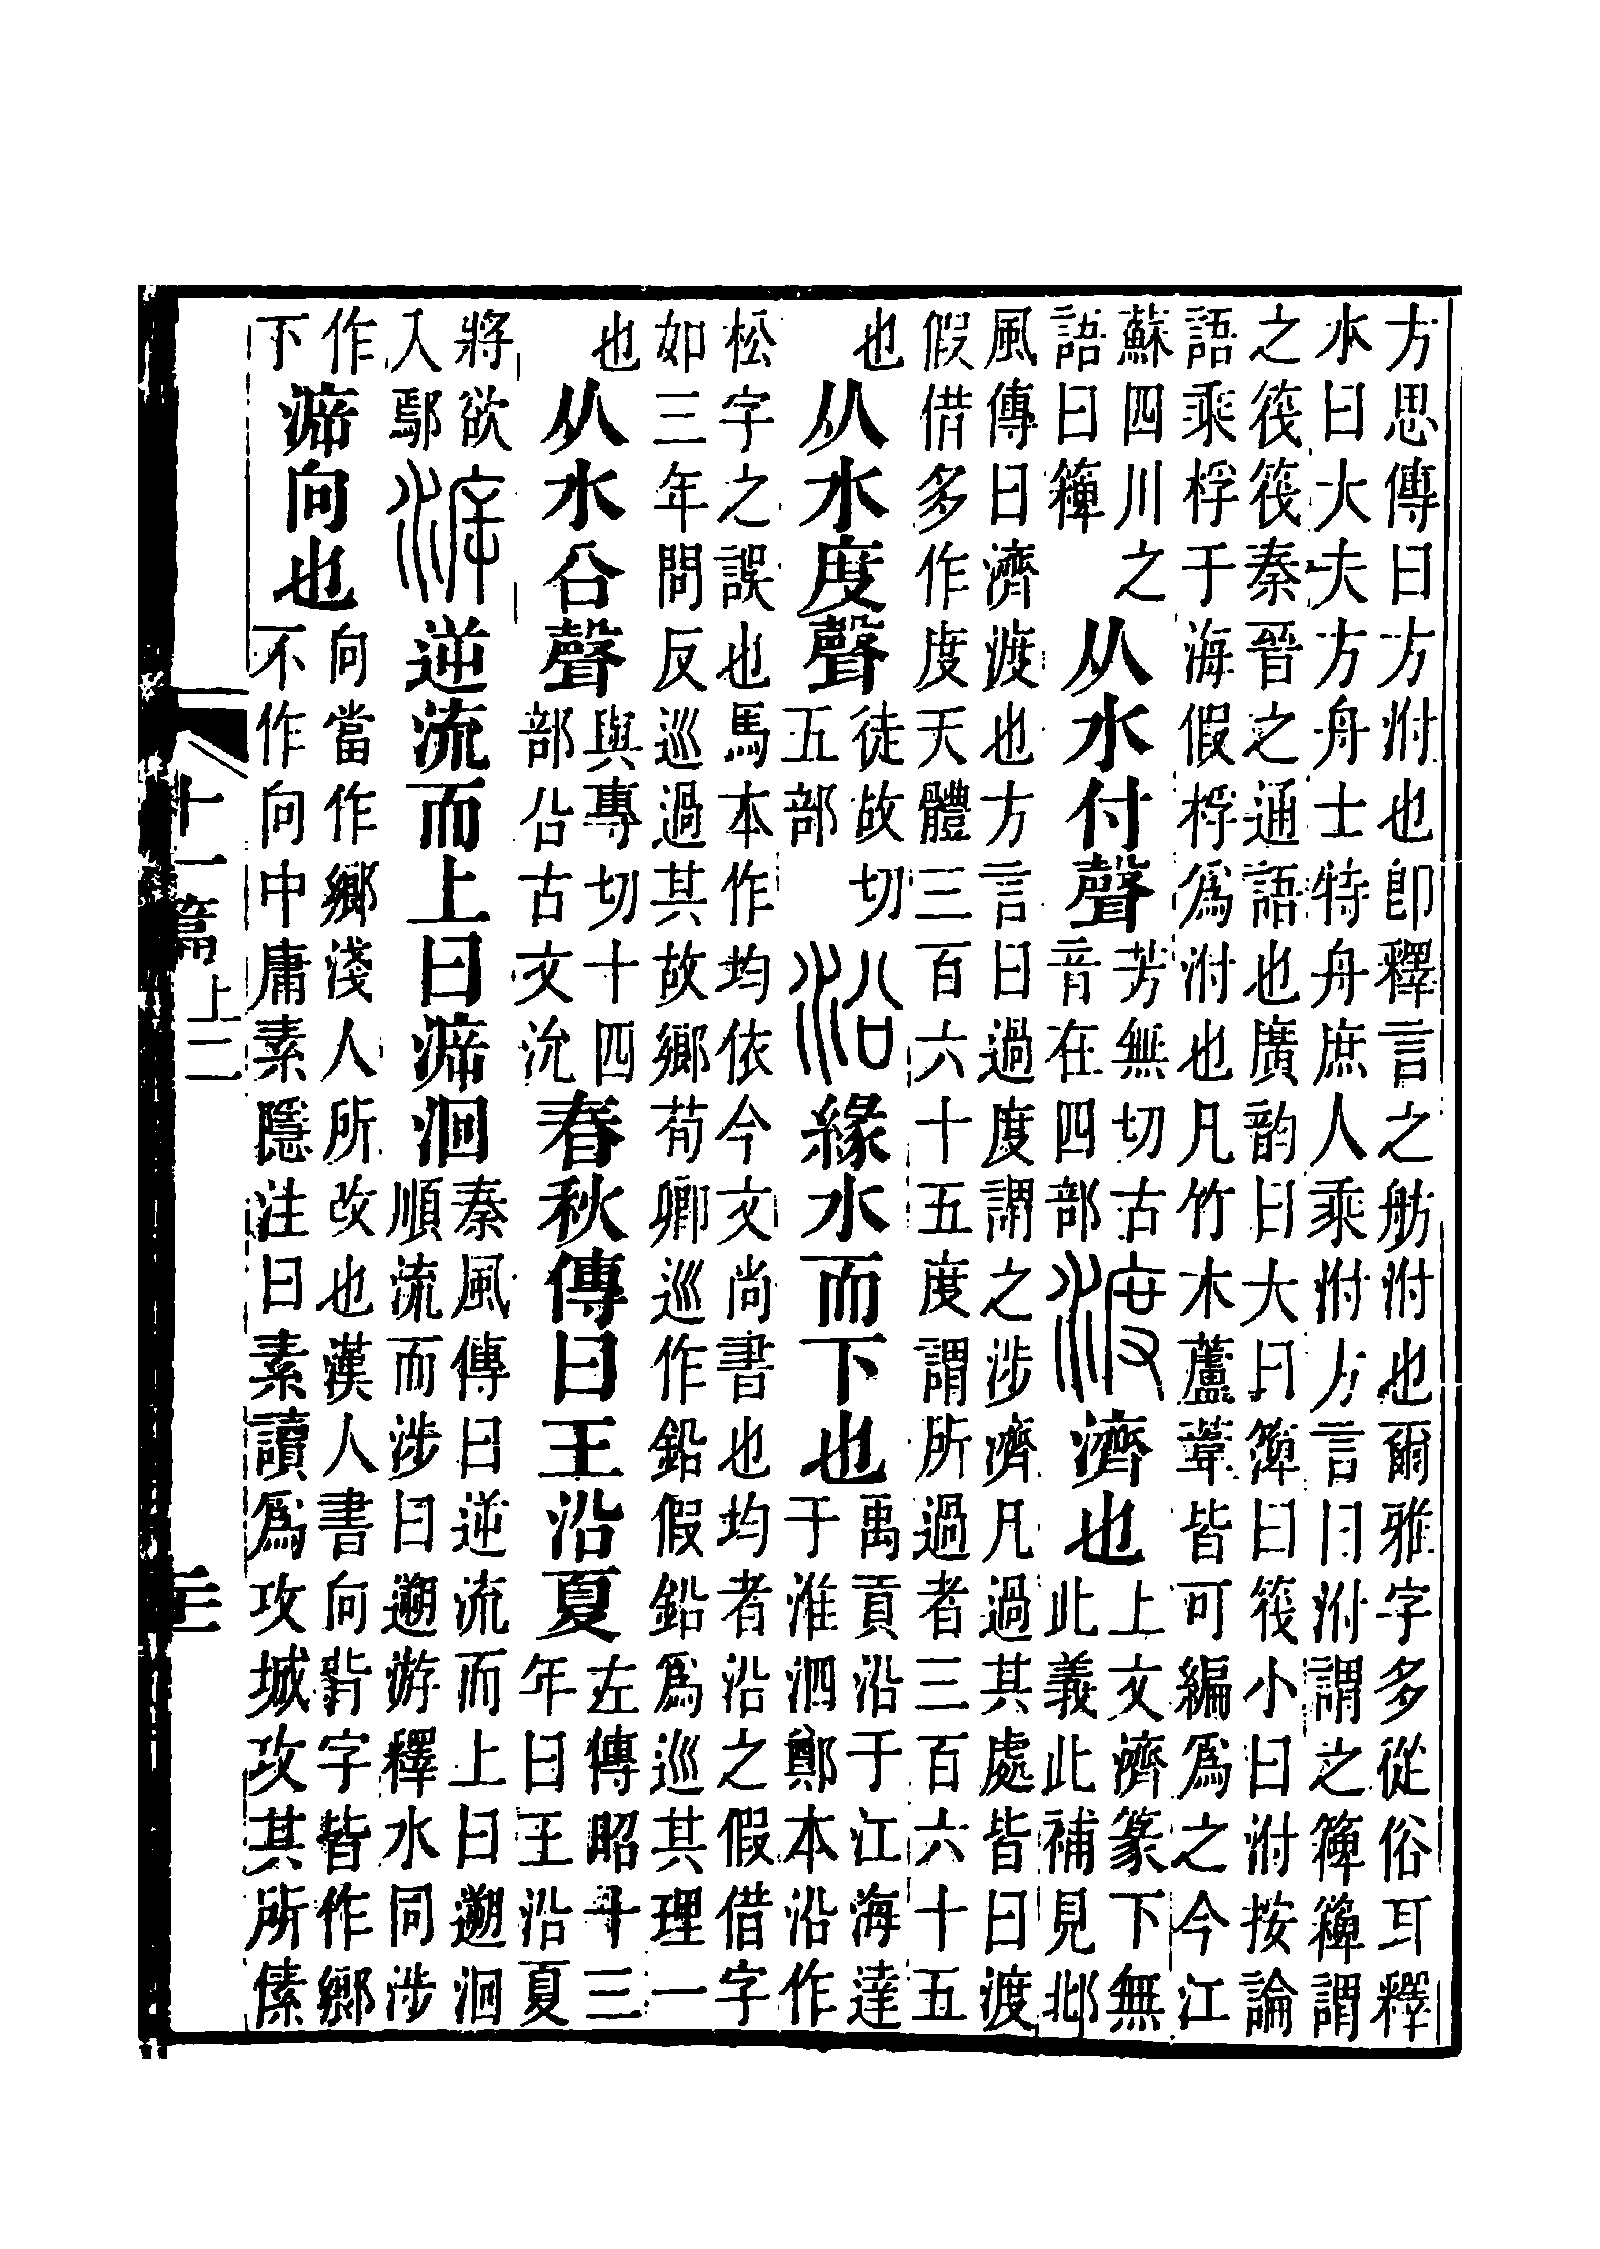 方思傳曰方泭也卽釋言之舫泭也爾雅字多從俗耳釋
水曰大夫方舟士特舟庶人乘泭方言曰泭謂之簰簰謂
之筏筏秦晉之通語也廣韵曰大曰簰曰筏小曰泭按論
語乘桴于海假桴爲泭也凡竹木蘆葦皆可編爲之今江
蘇四川之
語曰簰
从水付聲
芳無切古
音在四部
渡濟也
上文濟篆下無
此義此補見邶
風傳曰濟渡也方言曰過度謂之涉濟凡過其處皆曰渡
假借多作度天體三百六十五度謂所過者三百六十五
也
从水度聲
徒故切
五部
沿緣水而下也
禹貢沿于江海達
于淮泗鄭本沿作
松字之誤也馬本作均依今文尚書也均者沿之假借字
如三年問反巡過其故鄉荀卿巡作鉛假鉛爲巡其理一
也
从水㕣聲
與專切十四
部㕣古文沇
春秋傳曰王沿夏
左傳昭十三
年曰王沿夏
將欲
入鄢
㴑逆流而上曰㴑洄
秦風傳曰逆流而上曰遡洄
順流而涉曰遡游釋水同涉
作
下
㴑向也
向當作鄉淺人所改也漢人書向背字皆作鄉
不作向中庸素隱注曰素讀爲攻城攻其所傃
十一篇上二